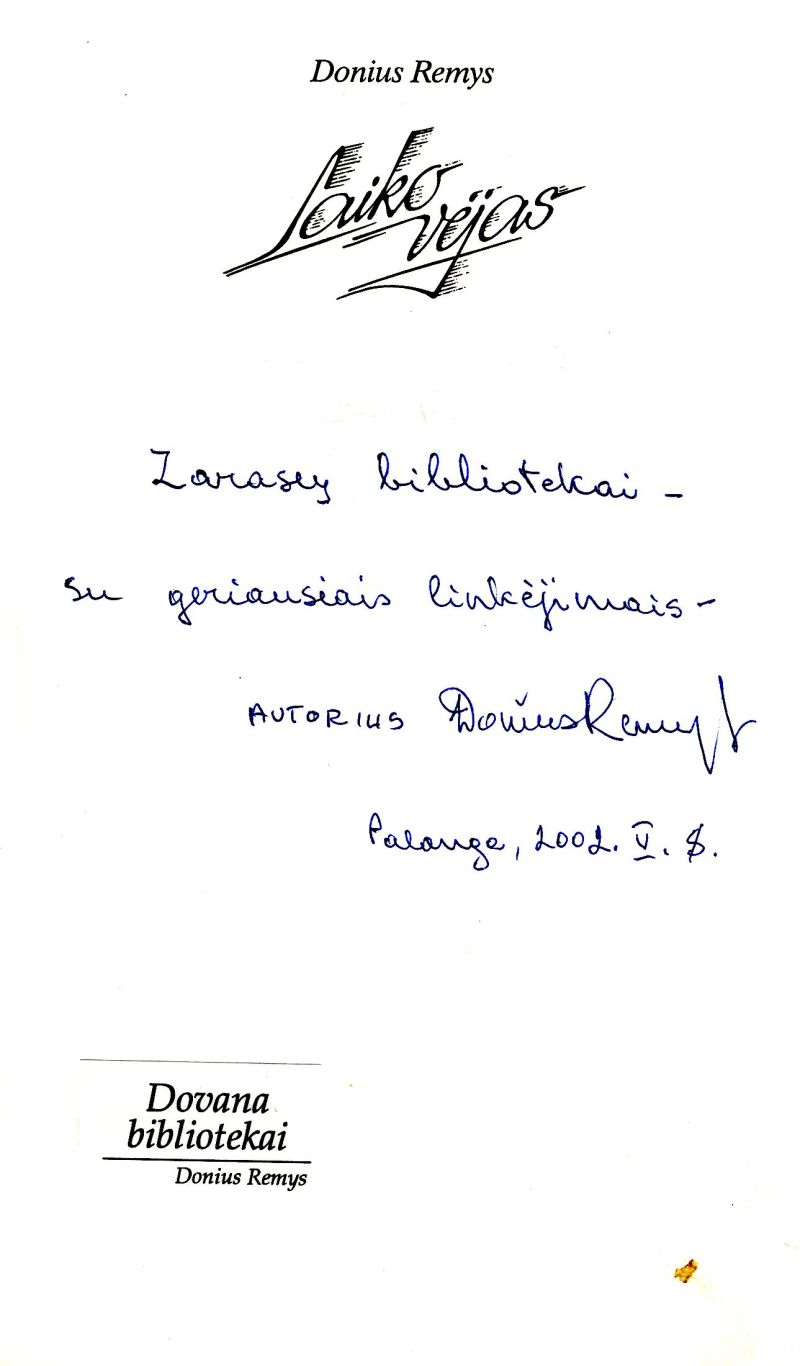 Donius Remys
Laiko
vėjas
Zarasų bibliotekai –
su geriausiais linkėjimais –
AUTORIUS Donius Remys
Palanga, 2002. V. 8.
Dovana
bibliotekai
Donius Remys